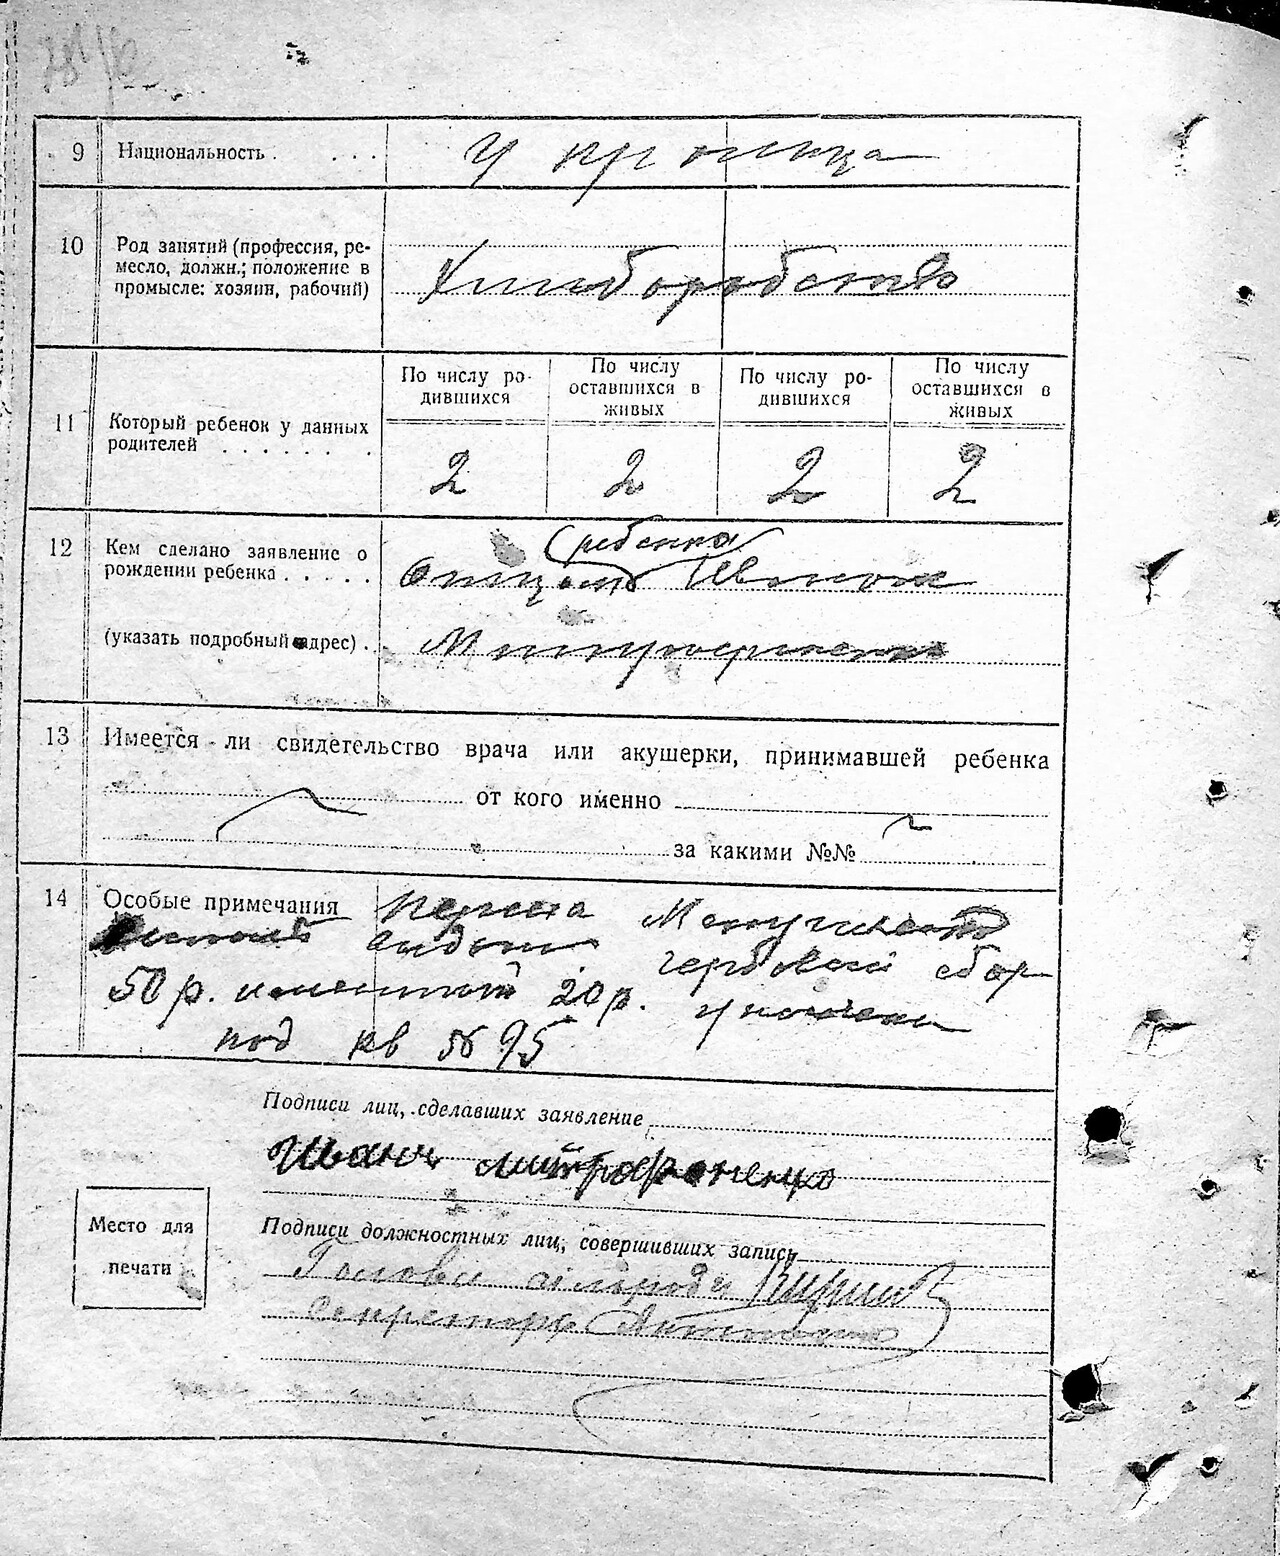 9 Национальность . . . . Украинца
10 Род занятий (профессия, ре-
месло, должн.; положение в
промысле: хозяин, рабочий)
Хлиборобство
По числу ро-
дившихся
По числу
оставшихся в
живых
По числу ро-
дившихся
По числу
оставшихся в
живых
11 Который ребенок у данных
родителей . . . . . . . .
2 2 2 2
12 Кем сделано заявление о
рождении ребенка . . . . .
ребенка
Отцом Иваном
(указать подробный адрес) . Митрофаненко
13 Имеется ли свидетельство врача или акушерки, принимавшей ребенка
от кого именно
за какими №№
14 Особые примечания
гербовый сбор
50 р. 20 р.
под кв № 95
Подписи лиц, сделавших заявление
Иван Митрофоненко
Место для
печати
Подписи должностных лиц, совершивших запись
Голова сільради
Секретарь